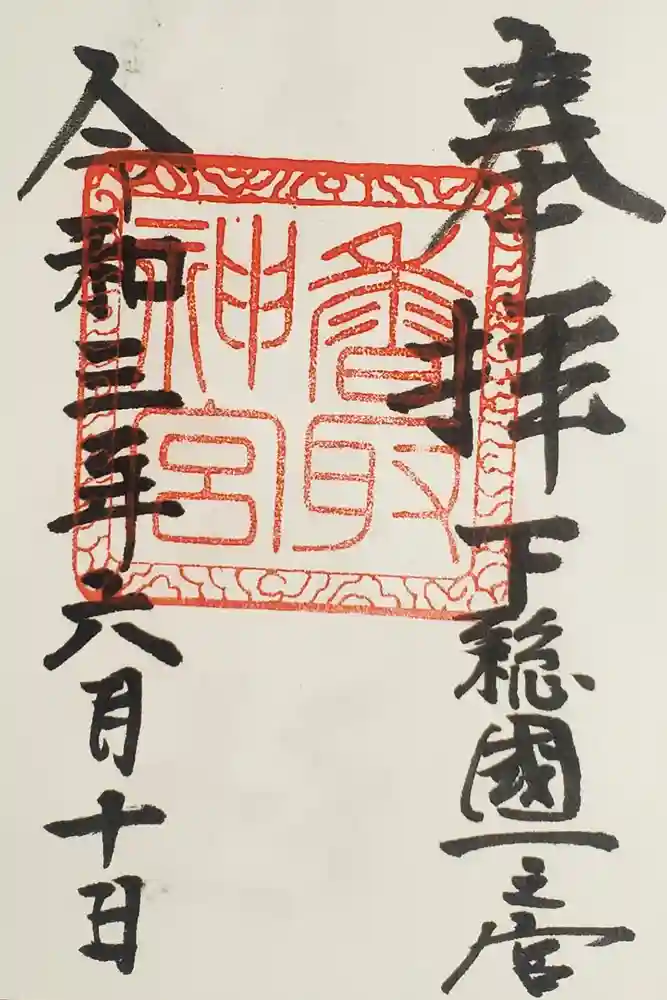 奉拝
下総國一之宮
香取
神宮
令和三年六月十日